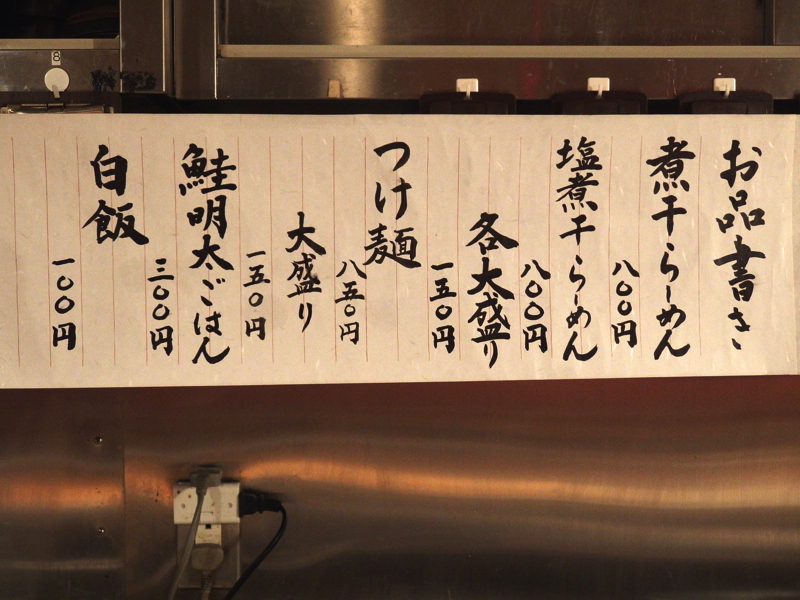 お品書き
煮干らーめん
八〇〇円
塩煮干らーめん
八〇〇円
各大盛り
一五〇円
つけ麺
八五〇円
大盛り
一五〇円
鮭明太ごはん
三〇〇円
白飯
一〇〇円
8